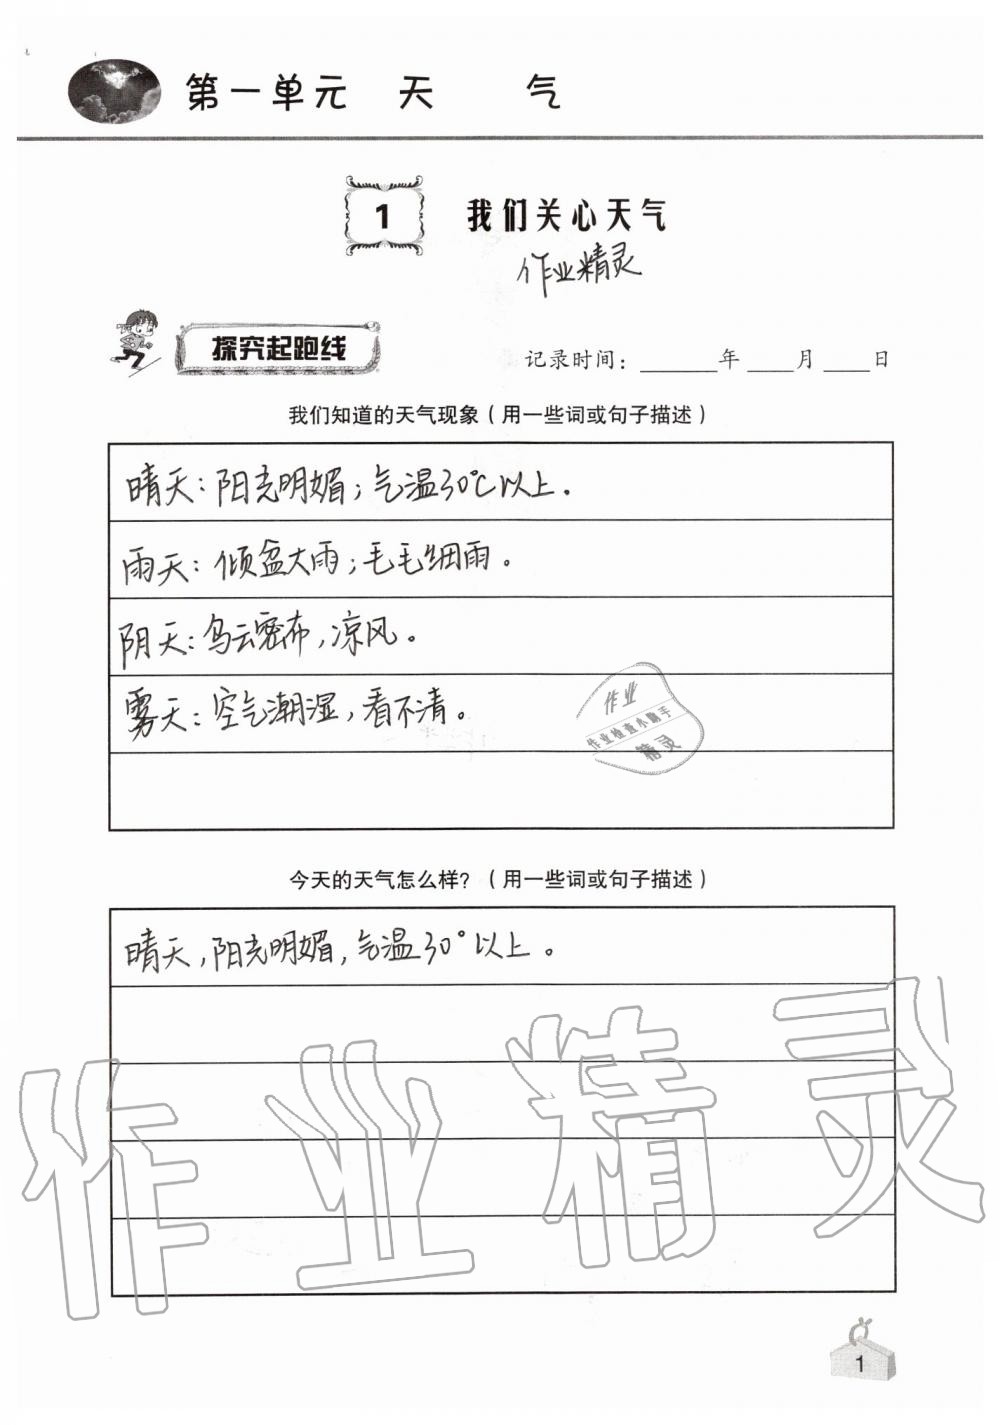 第一单元 天 气
1 我们关心天气
作业精灵
探究起跑线
记录时间：______年____月____日
我们知道的天气现象（用一些词或句子描述）
晴天：阳光明媚；气温30℃以上。
雨天：倾盆大雨；毛毛细雨。
阴天：乌云密布，凉风。
雾天：空气潮湿，看不清。
作业
作业检查小助手
精灵
今天的天气怎么样？（用一些词或句子描述）
晴天，阳光明媚，气温30°以上。
作业精灵
1